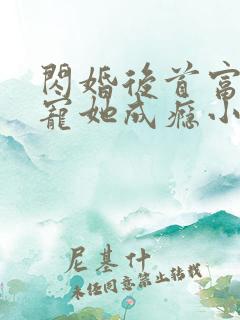 閃婚後首富
寵她成癮小
尼基什
未任同意禁止转載